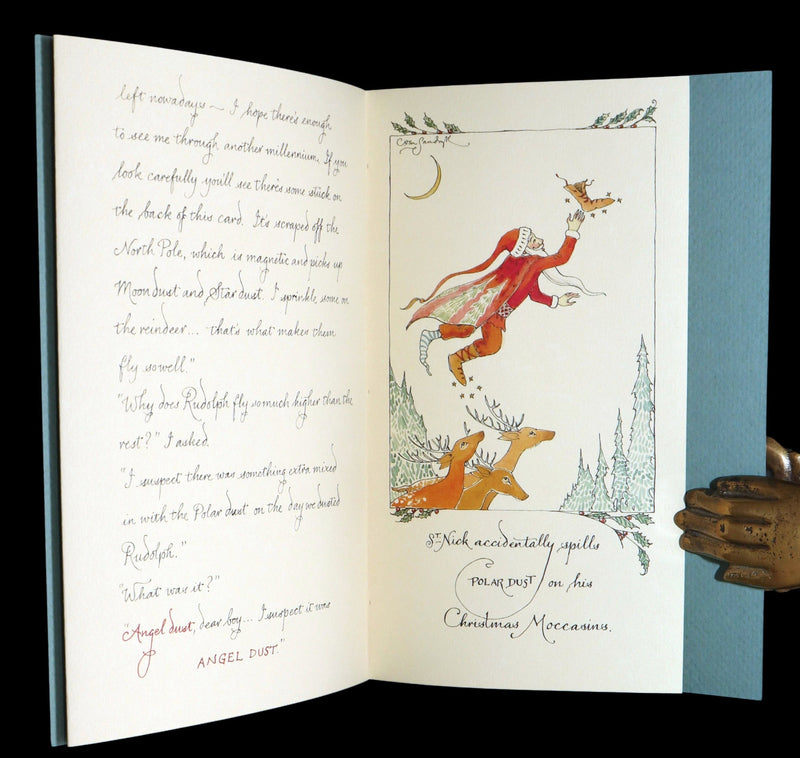 left nowadays ~ I hope there's enough
to see me through another millennium. If you
look carefully you'll see there's some stuck on
the back of this card. It's scraped off the
North Pole, which is magnetic and picks up
Moondust and Stardust. I sprinkle some on
the reindeer... that's what makes them
fly so well."
"Why does Rudolph fly so much higher than the
rest?" I asked.
"I suspect there was something extra mixed
in with the Polar dust on the day we dusted
Rudolph."
"What was it?"
"Angel dust, dear boy... I suspect it was
ANGEL DUST."
St. Nick accidentally spills
POLAR DUST on his
Christmas Moccasins.